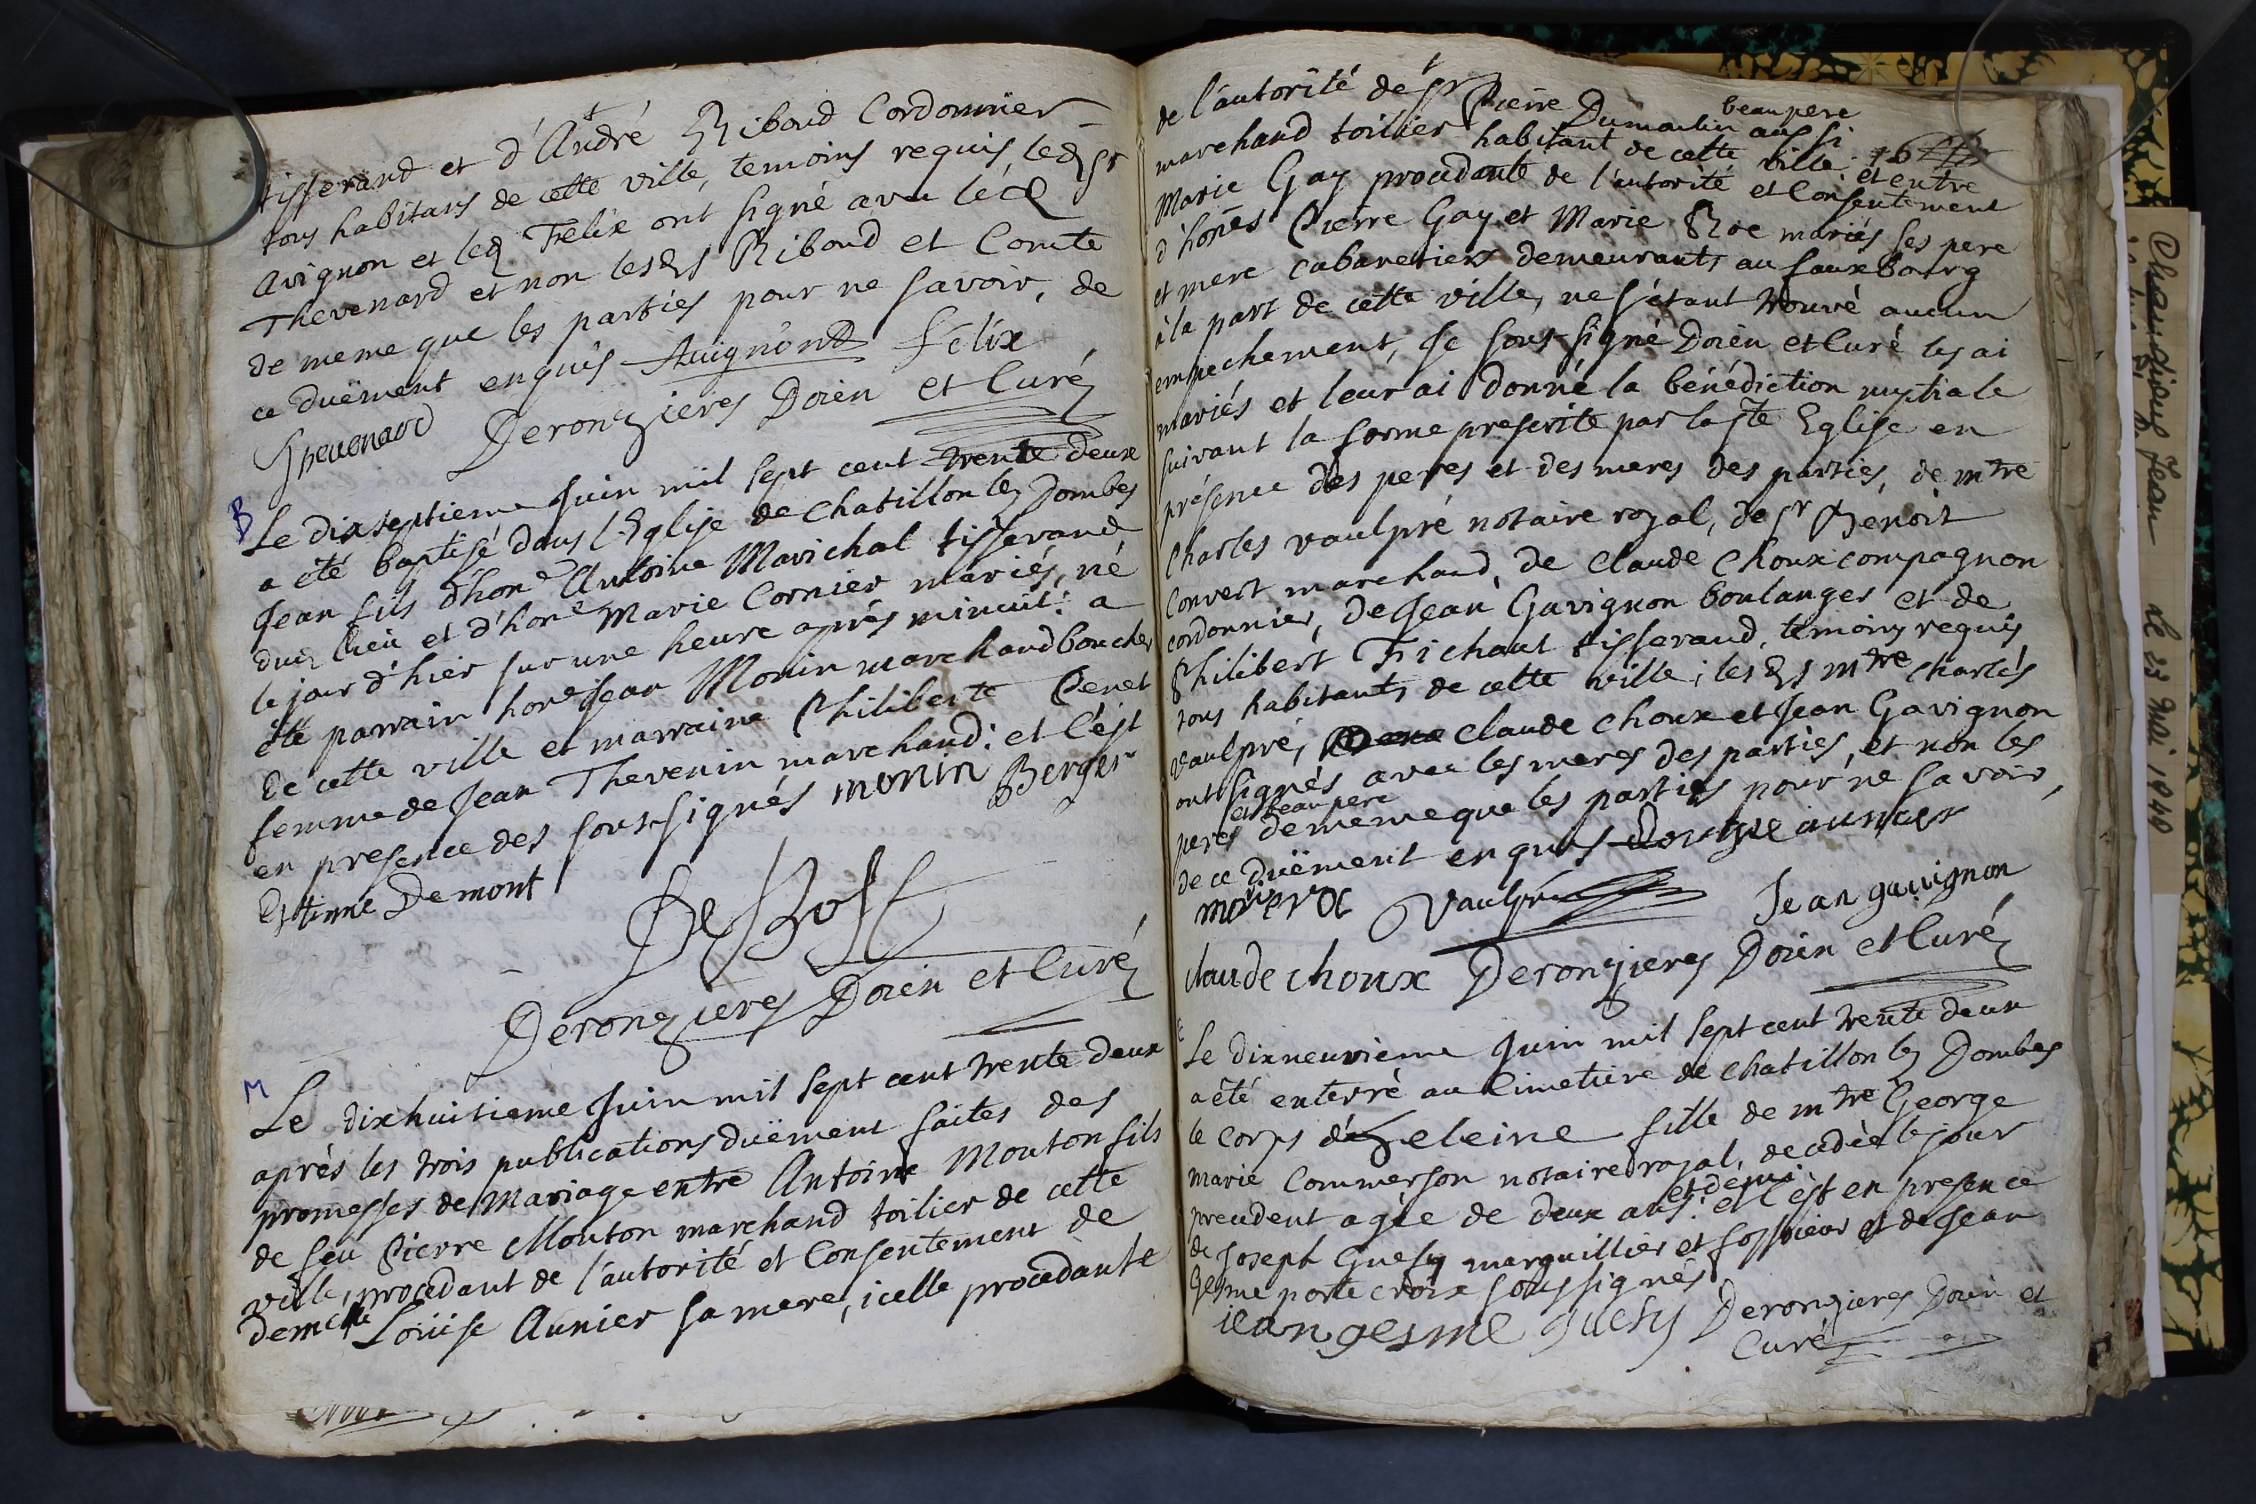 tisserand et d'André Riboud Cordonnier
tous habitans de cette ville, temoins requis, led Sr
Avignon et led Felix ont signé avec led
Thevenard et non lesds Riboud et Comte
de meme que les parties pour ne savoir, de
ce duëment enquis Auignond felix
Theuenard Deronzieres Doien et Curé
B
Le dixseptieme Juin mil sept cent trente deux
a été baptisé dans l'Eglise de Chatillon lez Dombes
Jean fils d'hone Antoine Marichal tisserand
dud lieu et d'hone Marie Cornier mariés, né
le jour d'hier sur une heure après minuit: a
été parrain hone Jean Monin marchand boucher
de cette ville et marraine Philiberte Penet
femme de Jean Thevenin marchand: et c'est
en presence des sous-signés monin Berger
Estinne Demont
Deronzieres Doien et Curé
M
Le dixhuitieme Juin mil sept cent trente deux
aprés les trois publications duëment faites des
promesses de mariage entre Antoine Mouton fils
de feu Pierre Mouton marchand toilier de cette
ville, procedant de l'autorité et Consentement de
demelle Loüise Aunier sa mere, icelle procedante
de l'autorité de Sr Pierre Dumoulin aussi
beau pere
marchand toilier habitant de cette ville: et entre
Marie Gay procedante de l'autorité et Consentement
d'hones Pierre Gay et Marie Roc mariés ses pere
et mere cabaretiers demeurants au fauxbourg
à la part de cette ville, ne s'étant trouvé aucun
empechement, Je sous-signé Doien et Curé les ai
mariés et leur ai donné la bénédiction nuptiale
suivant la forme prescrite par la Ste Eglise en
présence des peres et des meres des parties, de mtre
Charles Vaulpré notaire royal, de Sr Benoit
Convert marchand, de Claude Choux compagnon
cordonnier, de Jean Gavignon boulanger et de
Philibert Trichant tisserand, temoins requis
tous habitants de cette ville; lesds mtre Charles
Vaulpré, Claude Choux et Jean Gavignon
ont signés avec les meres des parties, et non les
peres et beau pere de meme que les parties pour ne savoir,
de ce duëment enquis Louise aunier
marie roc Vaulpré Jean gauignon
claude choux Deronzieres Doien et Curé
Le dixneuvieme Juin mil sept cent trente deux
a été enterré au Cimetiere de Chatillon lez Dombes
le corps d'heleine fille de mtre George
Marie Commerson notaire royal, decedée le jour
precedent agée de deux ans et demi: et c'est en presence
de Joseph Guesy marguillier et fossoieur et de Jean
Gesme porte croix soussignés
iean gesme guesy Deronzieres Doien et
Curé
Jean Le 23 mai 1840